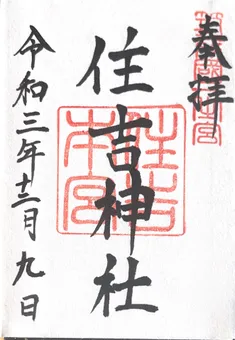 奉拝
住吉神社
住吉本宮
令和三年十二月九日